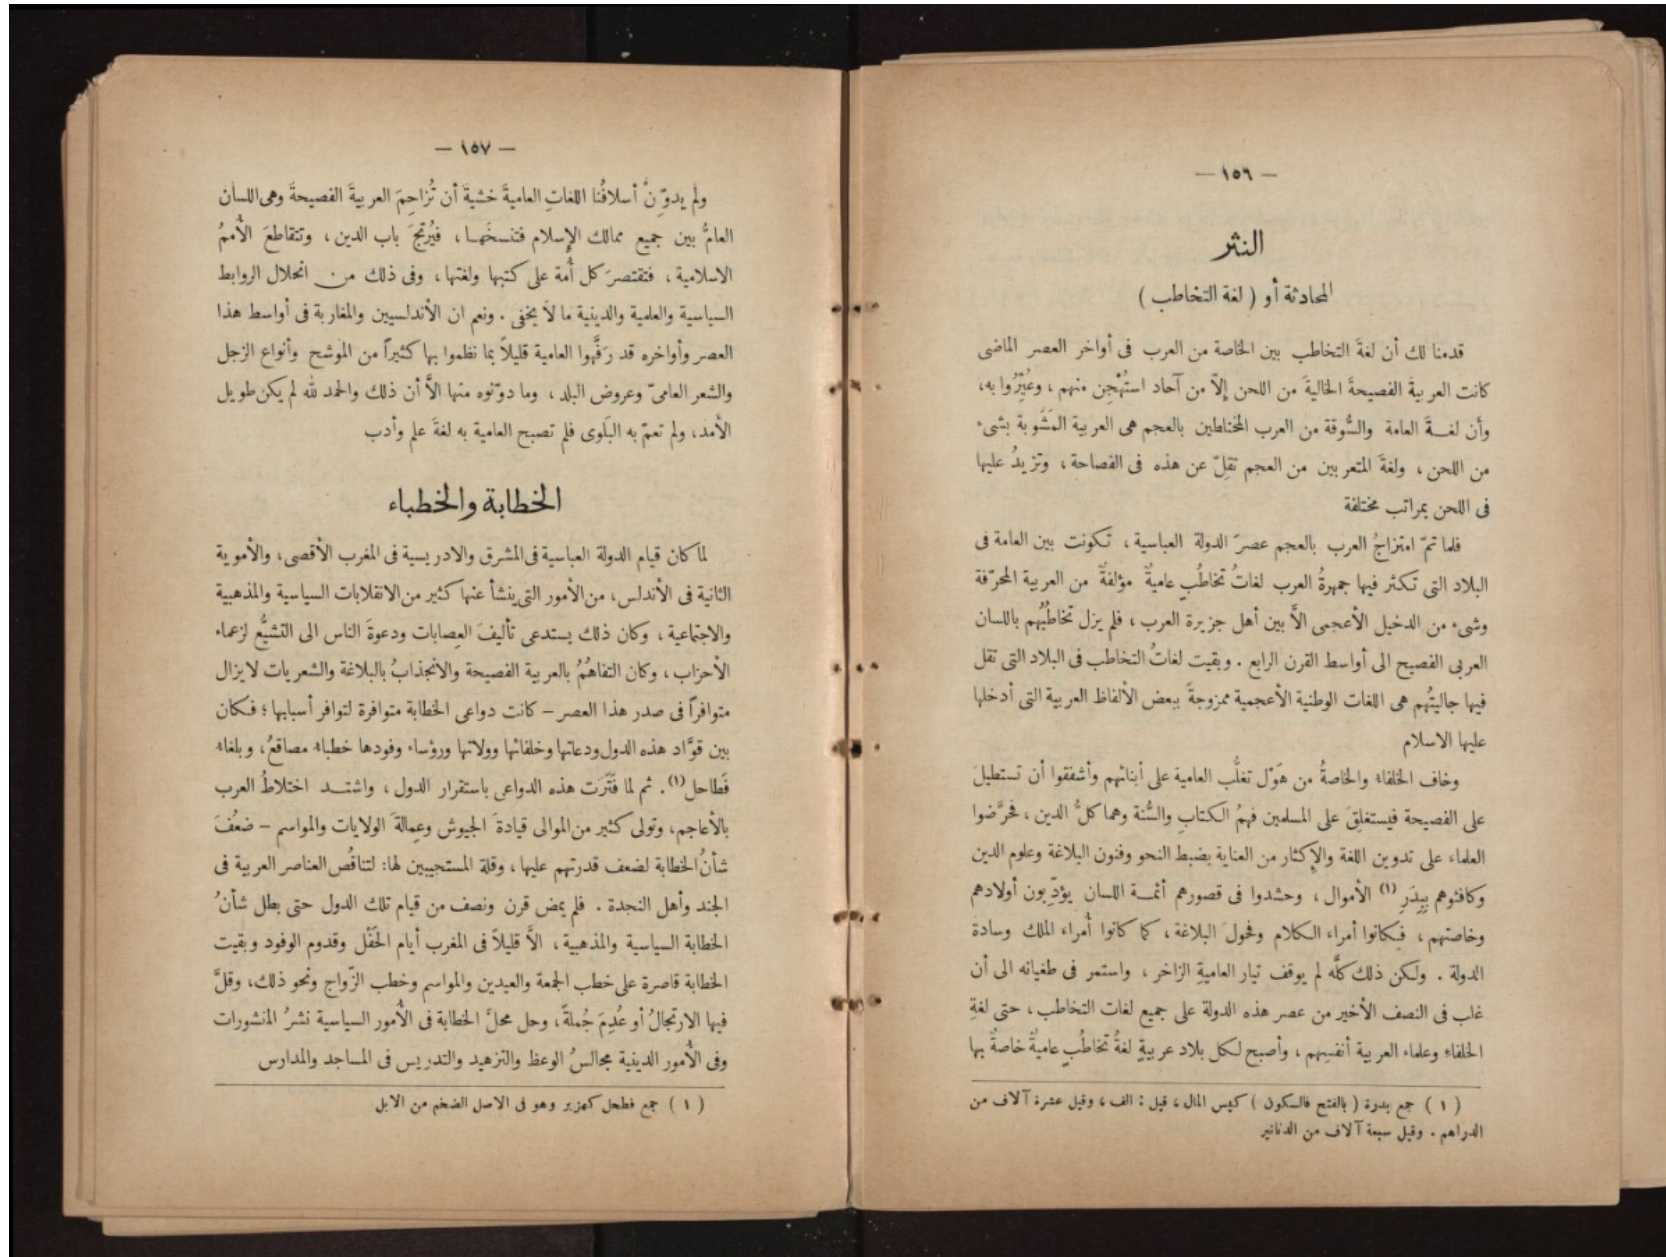 — ١٥٦ —
النثر
المحادثة أو ( لغة التخاطب )
قدمنا لك أن لغةَ التخاطب بين الخاصة من العرب فى أواخر العصر الماضى
كانت العربيةَ الفصيحةَ الخاليةَ من اللحن إلاّ من آحاد استُهْجِن منهم ، وعُيِّرُوا به،
وأن لغـةَ العامة والسُّوقة من العرب المختلطين بالعجم هى العربية المَشُوبة بشىء
من اللحن ، ولغةَ المتعربين من العجم تقِلّ عن هذه فى الفصاحة ، وتزيدُ عليها
فى اللحن بمراتب مختلفة
فلما تمّ امتزاجُ العرب بالعجم عصرَ الدولة العباسية ، تكونت بين العامة فى
البلاد التى تكثر فيها جمهرةُ العرب لغاتُ تخاطُبٍ عاميةٌ مؤلفةٌ من العربية المحرّفة
وشىء من الدخيل الأعجمى الاَّ بين أهل جزيرة العرب ، فلم يزل تخاطُبُهم باللسان
العربى الفصيح الى أواسط القرن الرابع . وبقيت لغاتُ التخاطب فى البلاد التى تقل
فيها جاليتُهم هى اللغات الوطنية الأعجمية ممزوجةً ببعض الألفاظ العربية التى أدخلها
عليها الاسلام
وخاف الخلفاء والخاصةُ من هَوْل تغلُّب العامية على أبنائهم وأشفقوا أن تستطيلَ
على الفصيحة فيستغلِقَ على المسلمين فهمُ الكتابِ والسُّنة وهما كلُّ الدين ، فحرَّضوا
العلماء على تدوين اللغة والإكثار من العناية بضبط النحو وفنون البلاغة وعلوم الدين
وكافئوهم بِبِدَرِ (١) الأموال ، وحشدوا فى قصورهم أئمـة اللسان يؤدِّبون أولادهم
وخاصتهم ، فكانوا أمراء الكلام وفحولَ البلاغة ، كما كانوا أُمراء الملك وسادة
الدولة . ولكن ذلك كلَّه لم يوقف تيار العاميةِ الزاخر ، واستمر فى طغيانه الى أن
غلب فى النصف الأخير من عصر هذه الدولة على جميع لغات التخاطب ، حتى لغةِ
الخلفاءِ وعلماء العربية أنفسِهم ، وأصبح لكل بلاد عربيةٍ لغةُ تخاطُبٍ عاميةٌ خاصةٌ بها
( ١ ) جمع بدرة ( بالفتح فالسكون ) كيس المال ، قيل : الف ، وقيل عشرة آلاف من
الدراهم . وقيل سبعة آلاف من الدنانير
— ١٥٧ —
ولم يدوّنْ أسلافُنا اللغاتِ العاميةَ خشيةَ أن تُزاحِمَ العربيةَ الفصيحةَ وهى اللسان
العامُّ بين جميع ممالك الإسلام فتنسخَهـا ، فيُرتجَ باب الدين ، وتتقاطعَ الأُممُ
الاسلامية ، فتقتصرَ كل أُمة على كتبها ولغتها ، وفى ذلك من انحلال الروابط
السياسية والعلمية والدينية ما لاَ يخفى . ونعم ان الأندلسيين والمغاربة فى أواسط هذا
العصر وأواخره قد رَفَّهوا العامية قليلاً بما نظموا بها كثيراً من الموشح وأنواع الزجل
والشعر العامىّ وعروض البلد ، وما دوّنوه منها الاَّ أن ذلك والحمد لله لم يكن طويل
الأمد، ولم تعمّ به البلَوى فلم تصبح العامية به لغةَ علم وأدب
الخطابة والخطباء
لما كان قيام الدولة العباسية فى المشرق والادريسية فى المغرب الأقصى، والأموية
الثانية فى الأندلس، من الأمور التى ينشأ عنها كثير من الانقلابات السياسية والمذهبية
والاجتماعية ، وكان ذلك يستدعى تأليفَ العِصابات ودعوةَ الناس الى التشيُّع لزعماء
الأحزاب ، وكان التفاهُمُ بالعربية الفصيحة والانجذابُ بالبلاغة والشعريات لا يزال
متوافراً فى صدر هذا العصر – كانت دواعى الخطابة متوافرة لتوافر أسبابها ؛ فكان
بين قوَّاد هذه الدول ودعاتها وخلفائها وولاتها ورؤساء وفودها خطباء مصاقعُ، وبلغاء
فَطاحل (١) . ثم لما فَتَرَت هذه الدواعى باستقرار الدول ، واشتـد اختلاطُ العرب
بالأعاجم، وتولى كثير من الموالى قيادةَ الجيوش وعِمالةَ الولايات والمواسم – ضعُفَ
شأنُ الخطابة لضعف قدرتهم عليها ، وقلة المستجيبين لها: لتناقُص العناصر العربية فى
الجند وأهل النجدة . فلم يمض قرن ونصف من قيام تلك الدول حتى بطل شأنُ
الخطابة السياسية والمذهبية ، الاَّ قليلاً فى المغرب أيام الحَفْل وقدوم الوفود وبقيت
الخطابة قاصرة على خطب الجمعة والعيدين والمواسم وخطب الزّواج ونحو ذلك، وقلَّ
فيها الارتجالُ أو عُدِمَ جُملةً، وحل محلَّ الخطابة فى الأُمور السياسية نشرُ المنشورات
وفى الأُمور الدينية مجالسُ الوعظ والتزهيد والتدريس فى المساجد والمدارس
( ١ ) جمع فطحل كهزبر وهو فى الاصل الضخم من الابل